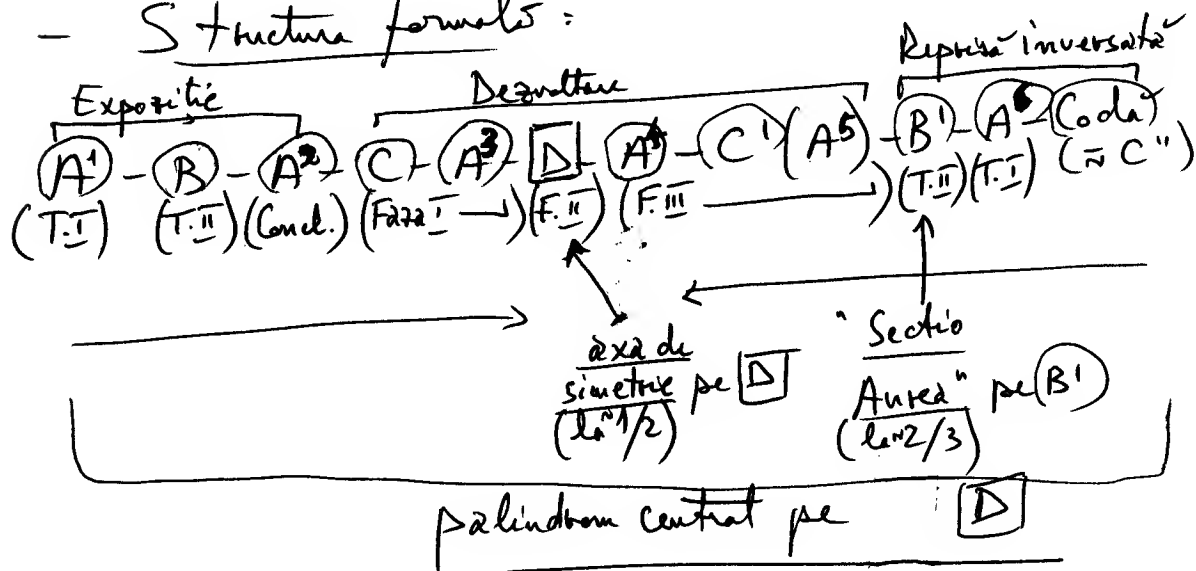 - Structura formală:
Repriză inversată
Expoziție Dezvoltare
A¹ - B - A² - C - A³ - D - A⁴ - C¹ (A⁵) - B¹ - A⁶ - Coda
(T.I) (T.II) (Concl.) (Faza I →) (F.II) (F.III →) (T.II) (T.I) (≈ C")
axa de simetrie pe D
(la ~1/2)
"Sectio
Aurea" pe B¹
(la ~2/3)
palindrom centrat pe D